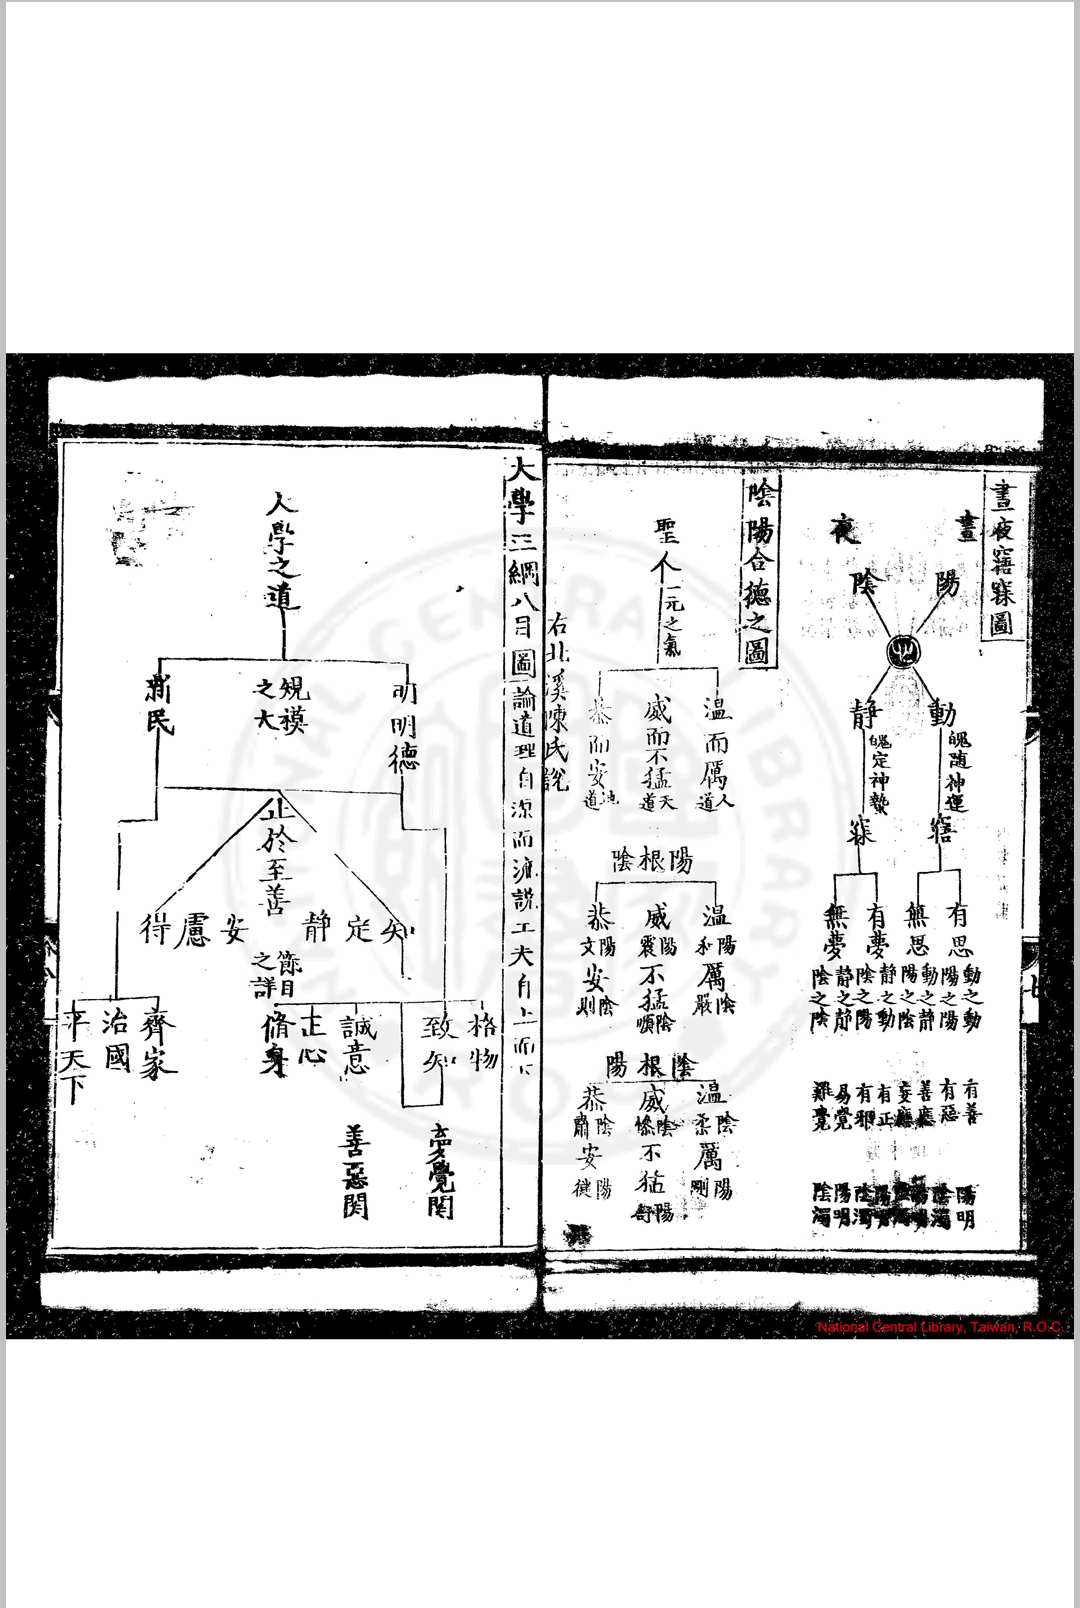 晝夜寤寐圖
晝
陽
夜
陰
動
魄隨神運
寤
靜
魄定神蟄
寐
有思
無思
有夢
無夢
動之動
陽之陽
動之靜
陽之陰
靜之動
陰之陽
靜之靜
陰之陰
有善
有惡
善應
妄應
有正
有邪
易覺
難覺
陽明
陰濁
陽明
陰濁
陽明
陰濁
陰陽合德之圖
聖人
一元之氣
溫而厲
人道
威而不猛
天道
恭而安
地道
陽根陰
溫
陽和
厲
陰嚴
威
陽震
不猛
陰順
恭
陽文
安
陰則
陰根陽
溫
陰柔
厲
陽剛
威
陰慘
不猛
陽舒
恭
陰肅
安
陽健
右北溪陳氏說
大學三綱八目圖
論道理自源而流說工夫自上而下
大學之道
明明德
規模之大
新民
止於至善
知
定
靜
安
慮
得
節目之詳
格物
致知
誠意
正心
脩身
齊家
治國
平天下
夢覺關
善惡關
National Central Library, Taiwan, R.O.C.